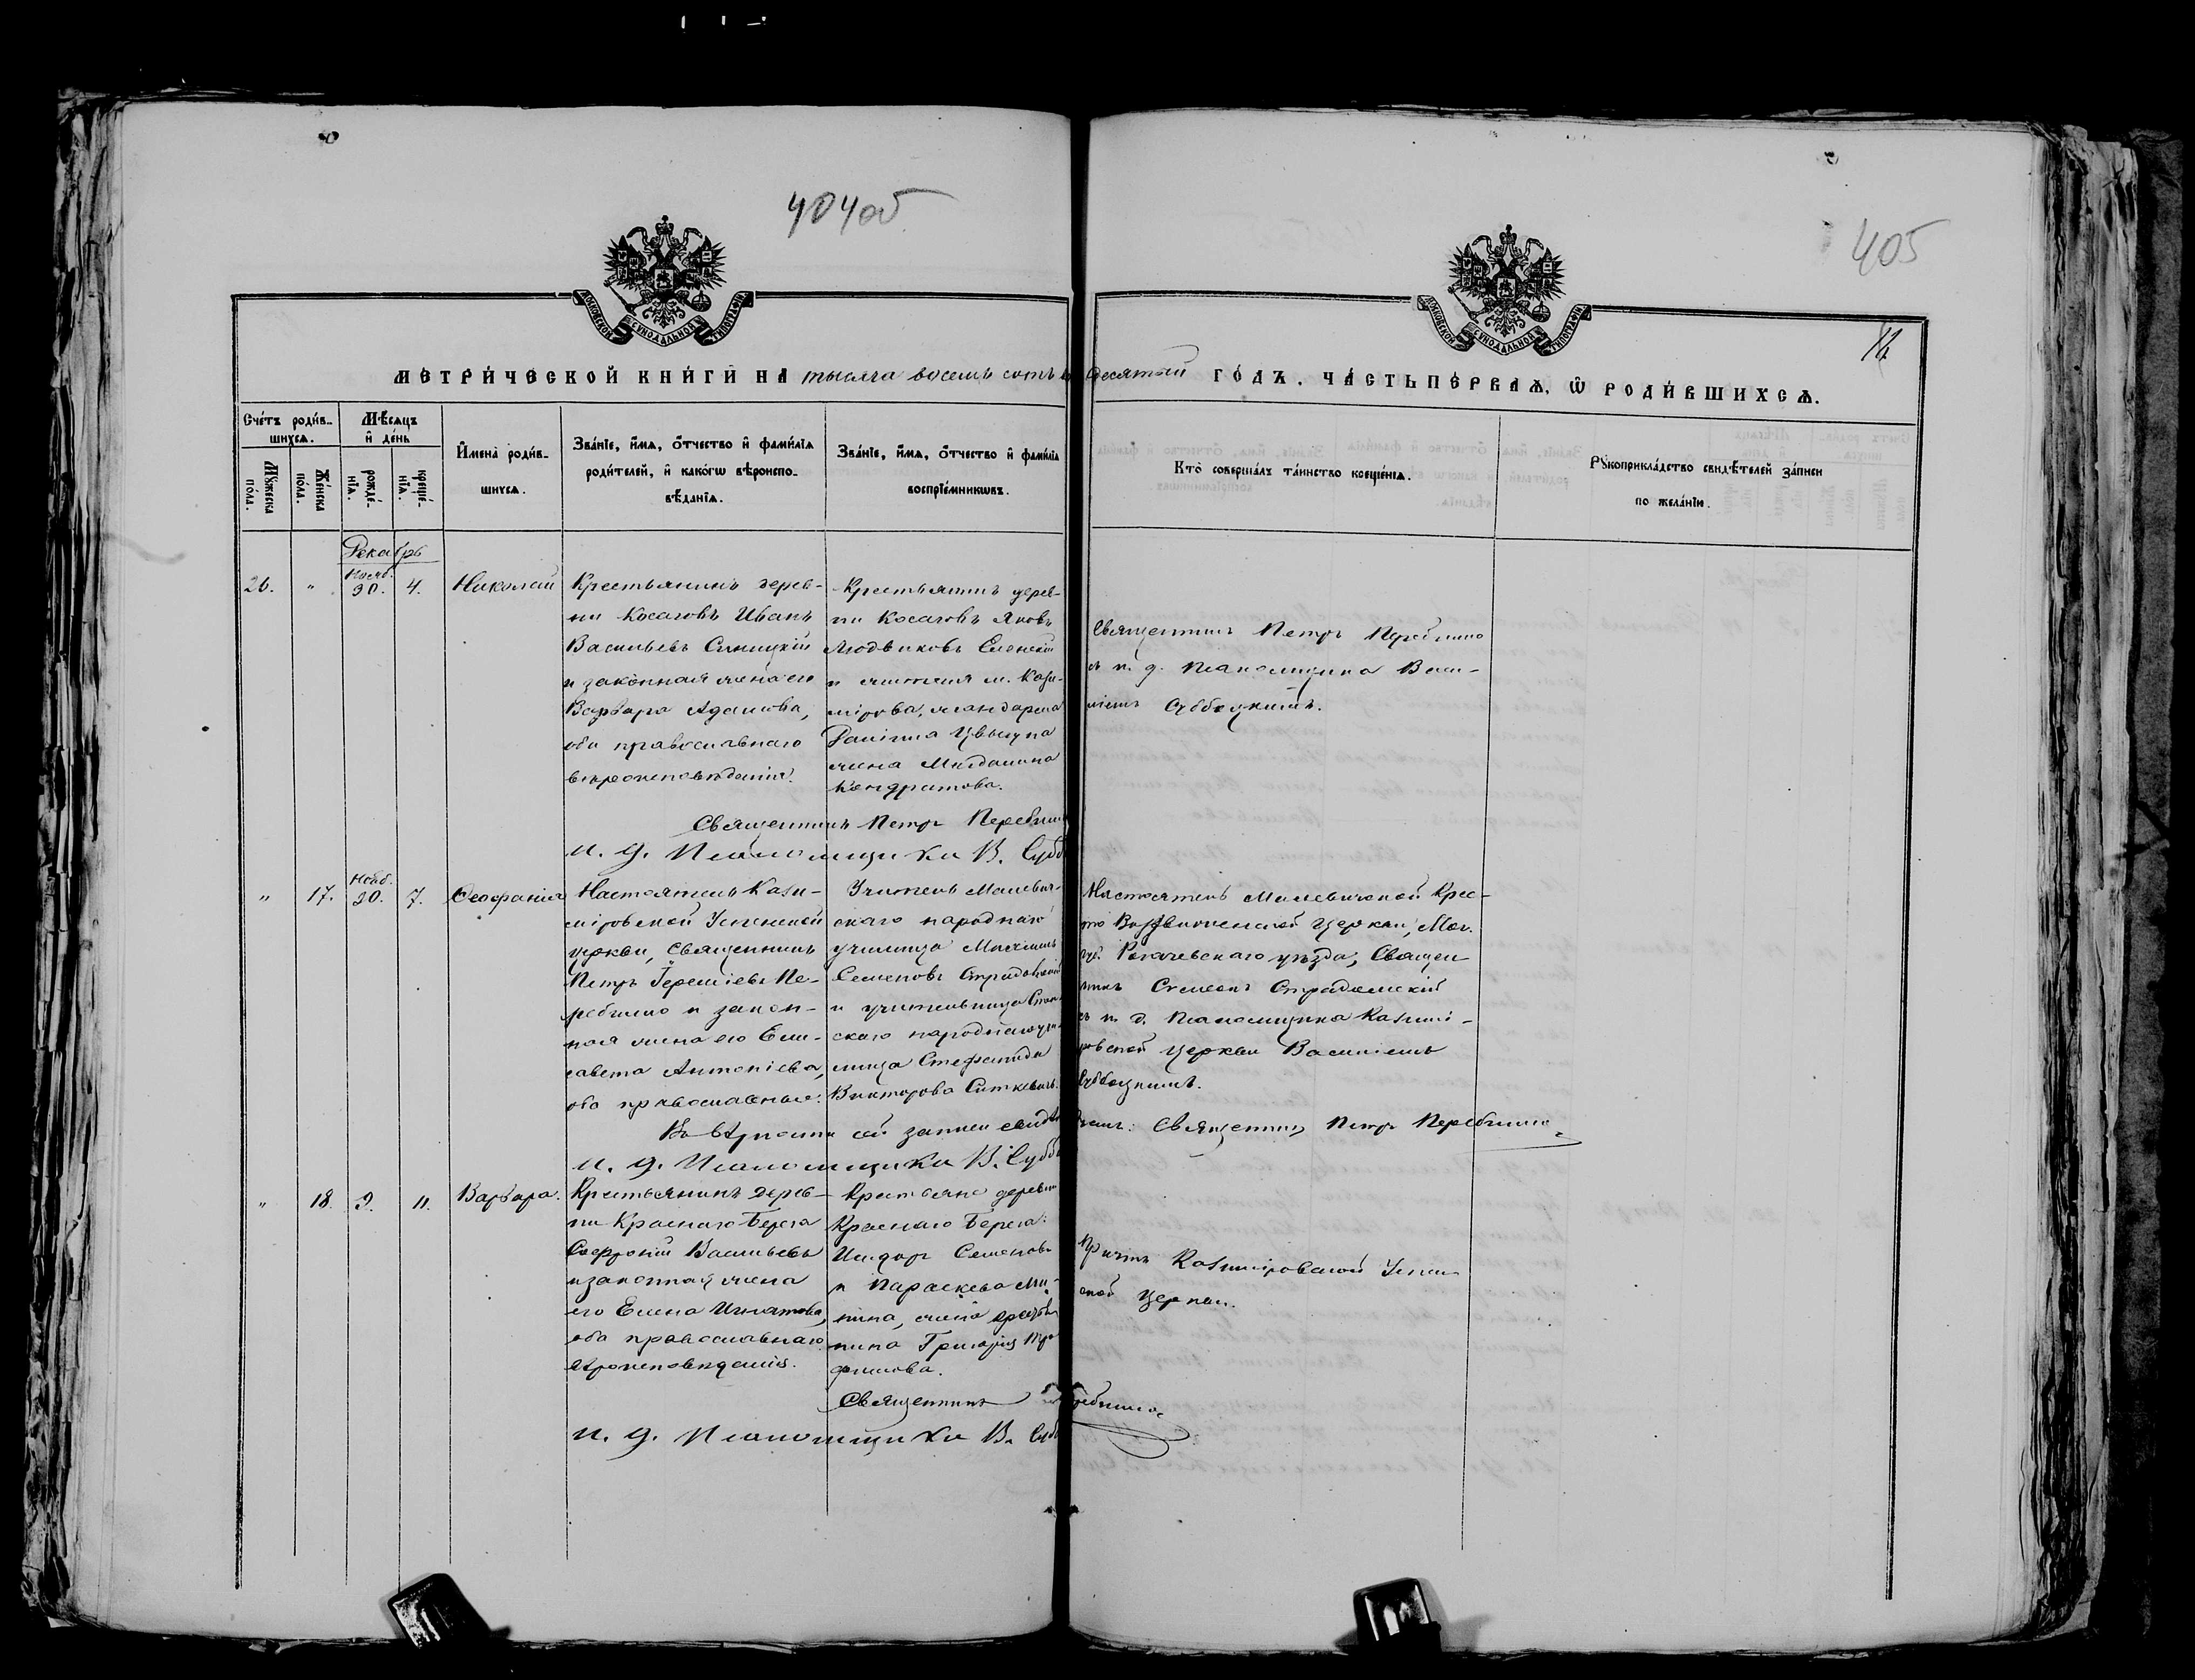 404об
405
МОСКОВСКОЙ СѴНОДАЛЬНОЙ ТИПОГРАФІИ
МОСКОВСКОЙ СѴНОДАЛЬНОЙ ТИПОГРАФІИ
МЕТРИ́ЧЕСКОЙ КНИ́ГИ НА тысяча восемь сотъ
десятый ГО́ДЪ. ЧА́СТЬ ПЕ́РВАѦ, Ѡ РОДИ́ВШИХСѦ.
Сче́тъ роди́в-
шихсѧ.
Мꙋ́жеска по́ла.
Же́нска по́ла.
Мѣ́сѧцъ
и҆ де́нь
рожде́-нїѧ.
креще́-нїѧ.
И҆мена̀ роди́в-
шихсѧ.
Зва́нїе, и҆́мѧ, ѻ҆́тчество и҆ фами́лїѧ
роди́телей, и҆ како́гѡ вѣроиспо-
вѣ́данїѧ.
Зва́нїе, и҆́мѧ, ѻ҆́тчество и҆ фами́лїѧ
воспрїе́мникѡвъ.
Кто̀ соверша́лъ та́инство креще́нїѧ.
Рꙋкоприкла́дство свидѣ́телей за́писи
по жела́нїю.
Декабрь
26. " Нояб. 30. 4. Николай
Крестьянинъ дерев-
ни Косаговъ Иванъ
Васильевъ Синицкій
и законная жена его
Варвара Адамова,
оба православнаго
вѣроисповѣданія.
Крестьянинъ дерев-
ни Косаговъ Яковъ
Людвиковъ
и м. Кази-
мірова, жандарма
жена Магдалина
Кондратова.
Священникъ Петръ Перебилло
съ и. д. Псаломщика Васи-
ліемъ Субботскимъ.
Священникъ Петръ
и. д. Псаломщика В. Субб
" 17. Нояб. 20. 7. Ѳеофанія
Настоятель Кази-
міровской Успенской
церкви, Священникъ
Петръ Іереміевъ Пе-
ребилло и закон-
ная жена его Ели-
савета Антоніева,
оба православные.
Учитель Малевич-
скаго народнаго
училища Михаилъ
Семеновъ Страдомскій
и учительница
скаго народнаго учи-
лища Стефанида
Викторова Ситкевичъ.
Настоятель Малевичской Кре-
сто Воздвиженской Церкви, Мог.
губ. Рогачевскаго уѣзда, Священ
никъ Симеонъ Страдомскій
съ и. д. Псаломщика Казимі-
ровской церкви Василіемъ
Субботскимъ.
Въ вѣрности сей записи свидѣ
Священникъ Петръ Перебилло
и. д. Псаломщика В. Субб
" 18. 9. 11. Варвара.
Крестьянинъ дерев-
ни Краснаго-Берега
Софроній Васильевъ
и законная жена
его Елена Игнатова,
оба православнаго
вѣроисповѣданія.
Крестьяне деревни
Краснаго Берега:
Исидоръ Семеновъ
и Параскева Ми-
нина, жена крестья
нина Григорія Тро
фимова.
Причтъ Казиміровской Успен
ской Церкви.
Священникъ Перебилло
и. д. Псаломщика В. Субб